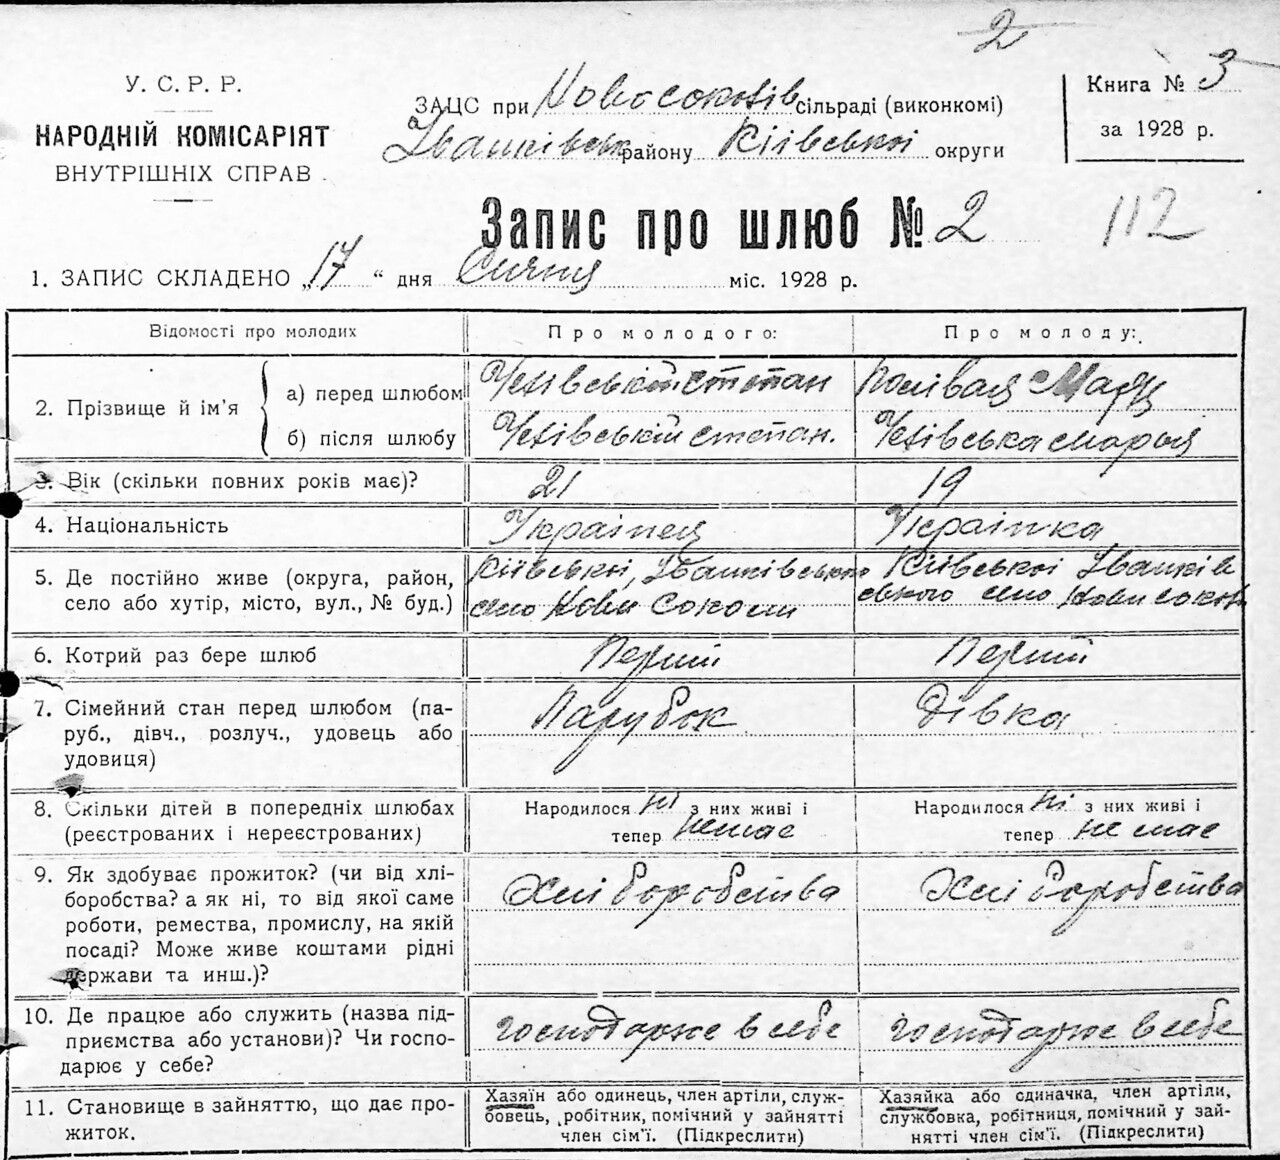 2
У. С. Р. Р.
НАРОДНІЙ КОМІСАРІЯТ
ВНУТРІШНІХ СПРАВ
ЗАЦС при Новосоколів сільраді (виконкомі)
Іванківськ району Київської округи
Книга № 3
за 1928 р.
Запис про шлюб № 2
112
1. ЗАПИС СКЛАДЕНО „17“ дня Січня міс. 1928 р.
Відомості про молодих
Про молодого:
Про молоду:
2. Прізвище й ім'я
а) перед шлюбом
Степан
б) після шлюбу
Степан.
Марья
3. Вік (скільки повних років має)?
21
19
4. Національність
Українец
Українка
5. Де постійно живе (округа, район,
село або хутір, місто, вул., № буд.)
Київської, Іванківського
село Нови Соколи
Київської Іванків
ського село Нови сокол
6. Котрий раз бере шлюб
Перший
Перший
7. Сімейний стан перед шлюбом (па-
руб., дівч., розлуч., удовець або
удовиця)
Парубок
Дівка
8. Скільки дітей в попередніх шлюбах
(реєстрованих і нереєстрованих)
Народилося ні з них живі і
тепер немає
Народилося ні з них живі і
тепер не має
9. Як здобуває прожиток? (чи від хлі-
боробства? а як ні, то від якої саме
роботи, ремества, промислу, на якій
посаді? Може живе коштами рідні
держави та инш.)?
Хліборобства
Хліборобства
10. Де працює або служить (назва під-
приємства або установи)? Чи госпо-
дарює у себе?
господарює в себе
господарює в себе
11. Становище в зайняттю, що дає про-
житок.
Хазяїн або одинець, член артіли, служ-
бовець, робітник, помічний у зайнятті
член сім'ї. (Підкреслити)
Хазяйка або одиначка, член артіли,
службовка, робітниця, помічний у зай-
нятті член сім'ї. (Підкреслити)